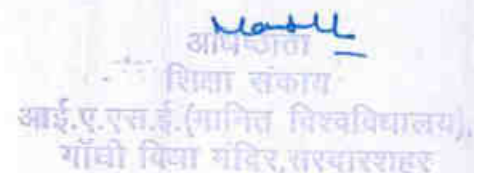 अधिष्ठाता
शिक्षा संकाय
आई.ए.एस.ई.(मानित विश्वविद्यालय),
गाँधी विद्या मंदिर,सरदारशहर